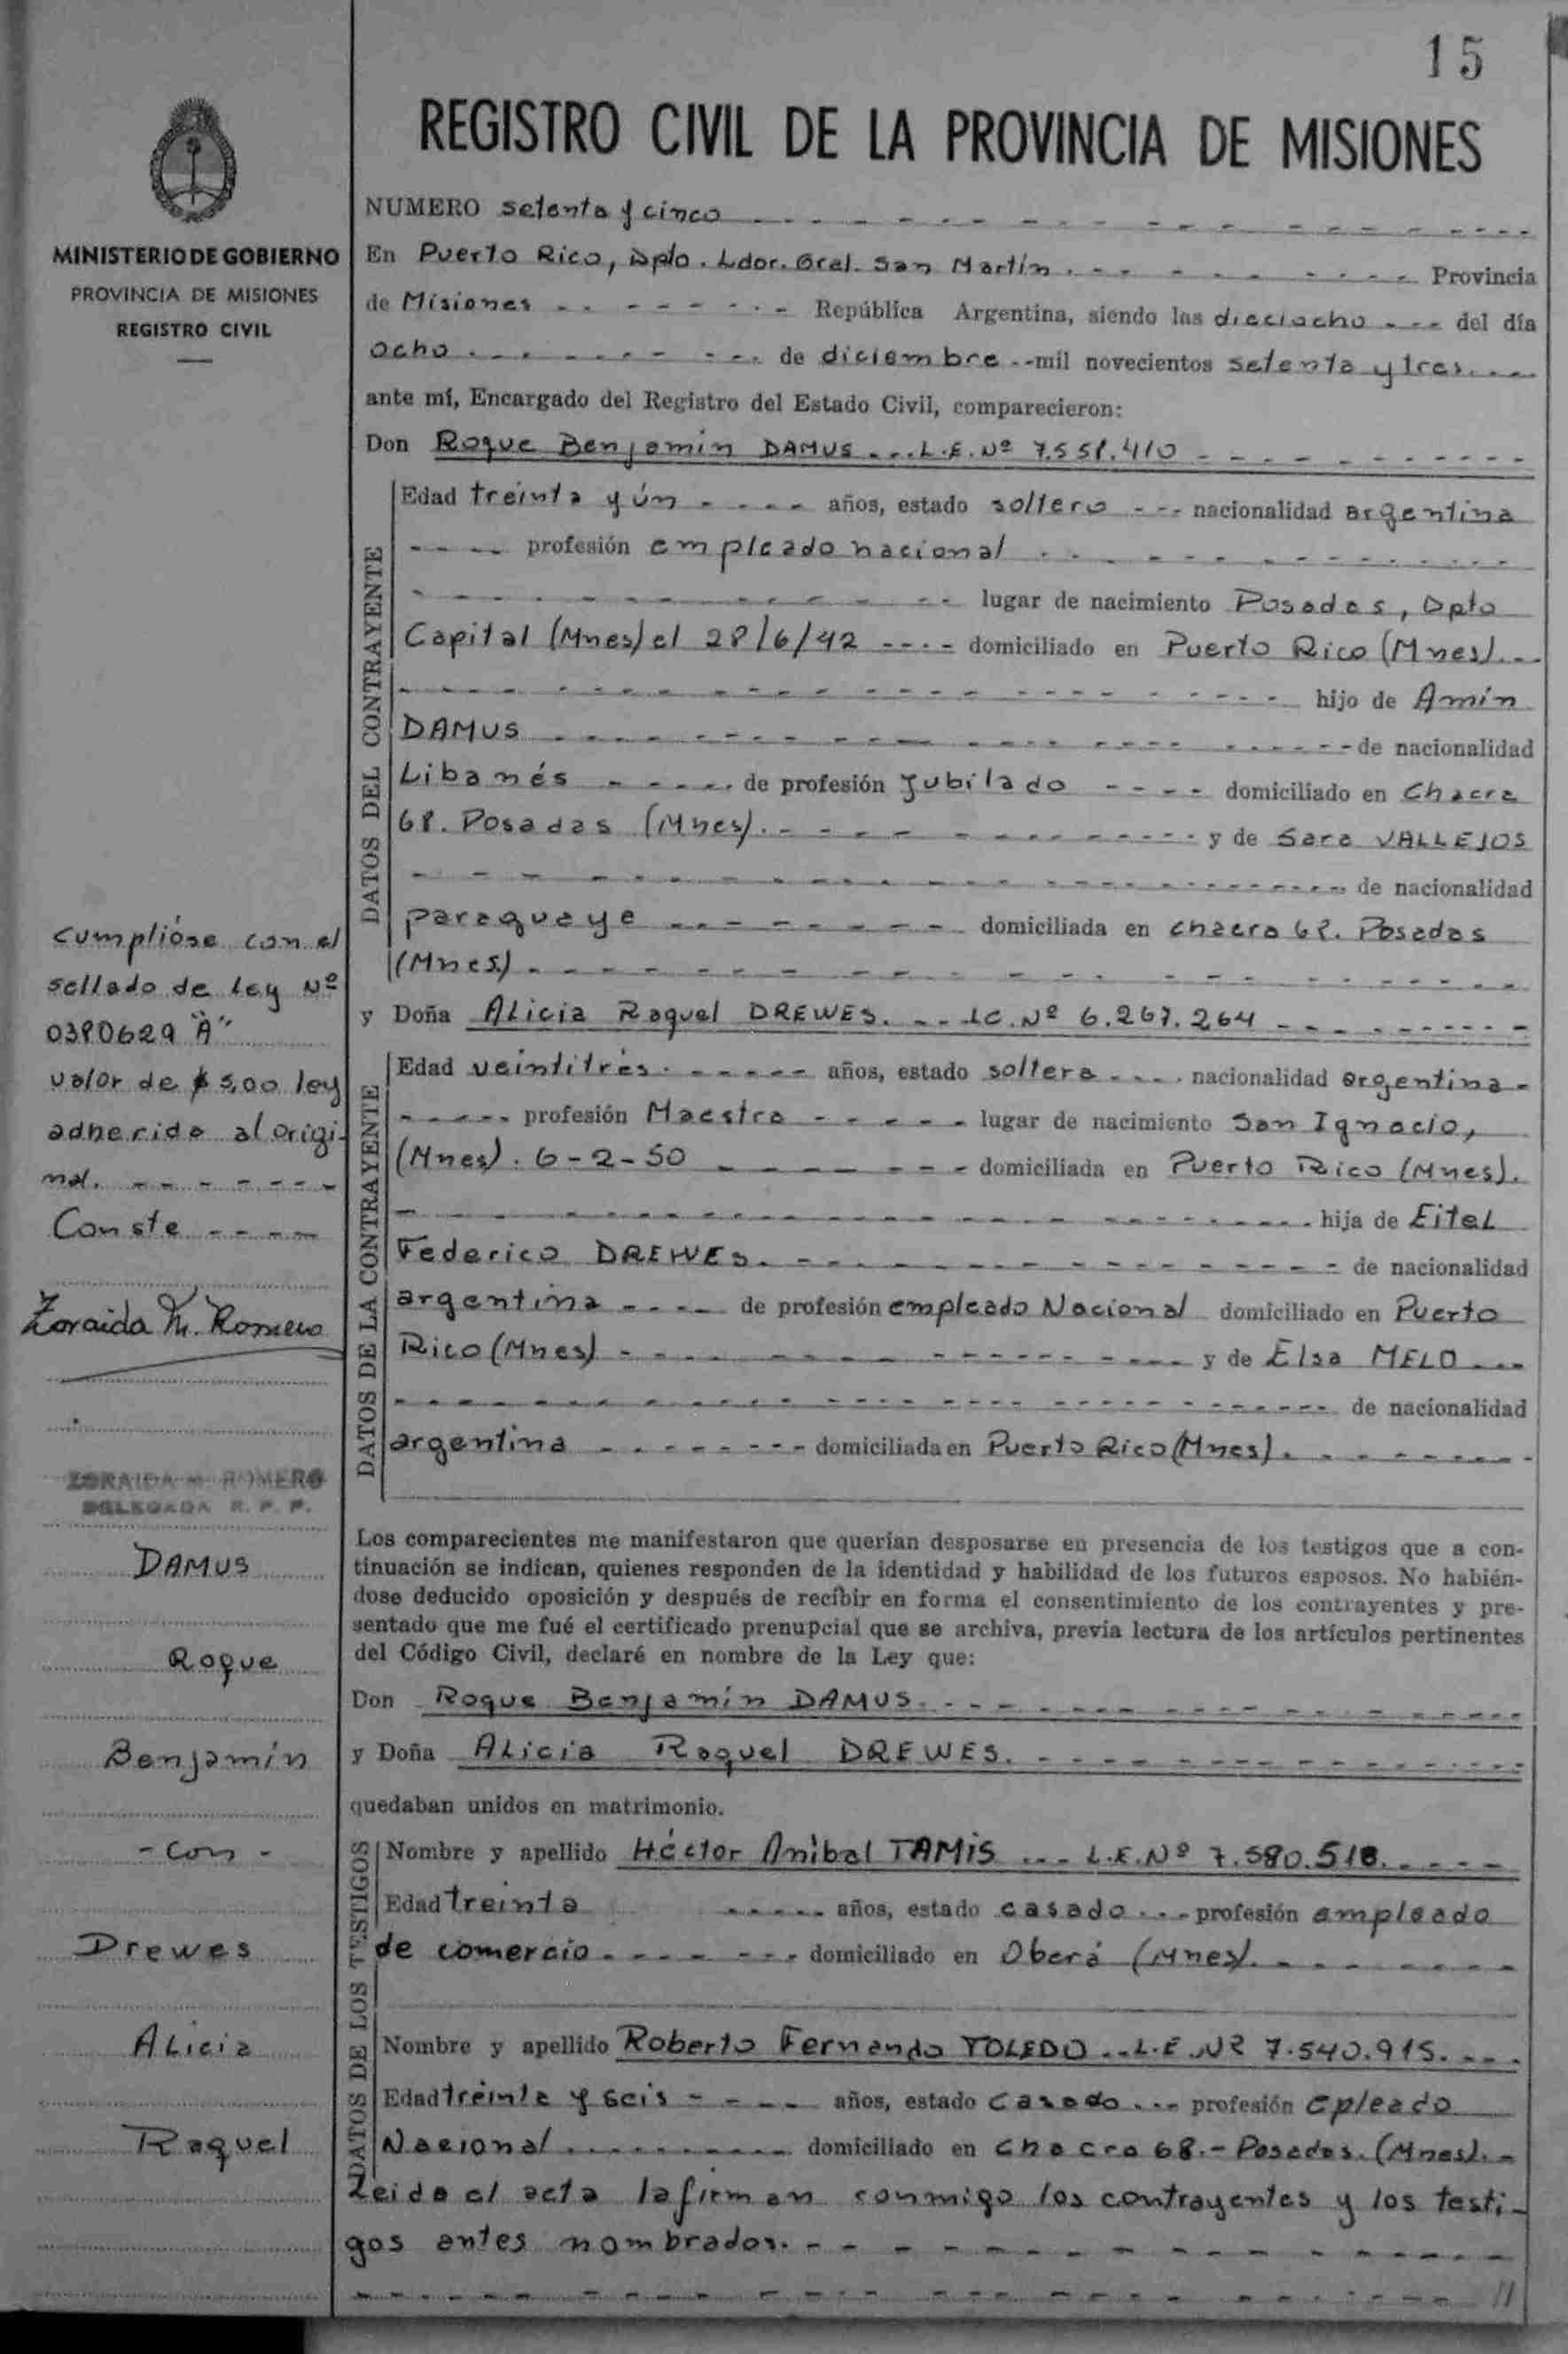 15
REGISTRO CIVIL DE LA PROVINCIA DE MISIONES
MINISTERIO DE GOBIERNO
PROVINCIA DE MISIONES
REGISTRO CIVIL
NUMERO setenta y cinco
En Puerto Rico, Dpto. Ldor. Gral. San Martín. Provincia
de Misiones República Argentina, siendo las dieciocho del día
ocho de diciembre mil novecientos setenta y tres.
ante mí, Encargado del Registro del Estado Civil, comparecieron:
Don Roque Benjamín DAMUS L.E. Nº 7.558.410
DATOS DEL CONTRAYENTE
Edad treinta y ún años, estado soltero nacionalidad argentina
profesión empleado nacional
lugar de nacimiento Posadas, Dpto
Capital (Mnes) el 28/6/42 domiciliado en Puerto Rico (Mnes).
hijo de Amín
DAMUS de nacionalidad
Libanés de profesión Jubilado domiciliado en Chacra
68. Posadas (Mnes). y de Sara VALLEJOS
de nacionalidad
paraguaya domiciliada en chacra 68. Posadas
(Mnes)
y Doña Alicia Raquel DREWES. LC. Nº 6.267.264
DATOS DE LA CONTRAYENTE
Edad veintitrés. años, estado soltera nacionalidad argentina
profesión Maestra lugar de nacimiento San Ignacio,
(Mnes). 6-2-50 domiciliada en Puerto Rico (Mnes).
hija de Eitel
Federico DREWES. de nacionalidad
argentina de profesión empleado Nacional domiciliado en Puerto
Rico (Mnes) y de Elsa MELO
de nacionalidad
argentina domiciliada en Puerto Rico (Mnes).
Los comparecientes me manifestaron que querían desposarse en presencia de los testigos que a con-
tinuación se indican, quienes responden de la identidad y habilidad de los futuros esposos. No habién-
dose deducido oposición y después de recibir en forma el consentimiento de los contrayentes y pre-
sentado que me fué el certificado prenupcial que se archiva, previa lectura de los artículos pertinentes
del Código Civil, declaré en nombre de la Ley que:
Don Roque Benjamín DAMUS.
y Doña Alicia Raquel DREWES.
quedaban unidos en matrimonio.
DATOS DE LOS TESTIGOS
Nombre y apellido Héctor Aníbal TAMIS L.E. Nº 7.580.518.
Edad treinta años, estado casado profesión empleado
de comercio domiciliado en Oberá (Mnes).
Nombre y apellido Roberto Fernando TOLEDO L.E. Nº 7.540.915.
Edad treinta y seis años, estado casado profesión epleado
Nacional domiciliado en chacra 68.- Posadas. (Mnes).
Leida el acta la firman conmigo los contrayentes y los testi-
gos antes nombrados.
cumplióse con el
sellado de ley Nº
0380629 "A"
valor de $ 5,00 ley
adherido al origi-
nal.
Conste
Zoraida M. Romero
ZORAIDA M. ROMERO
DELEGADA R. P. P.
DAMUS
Roque
Benjamín
- con -
Drewes
Alicia
Raquel